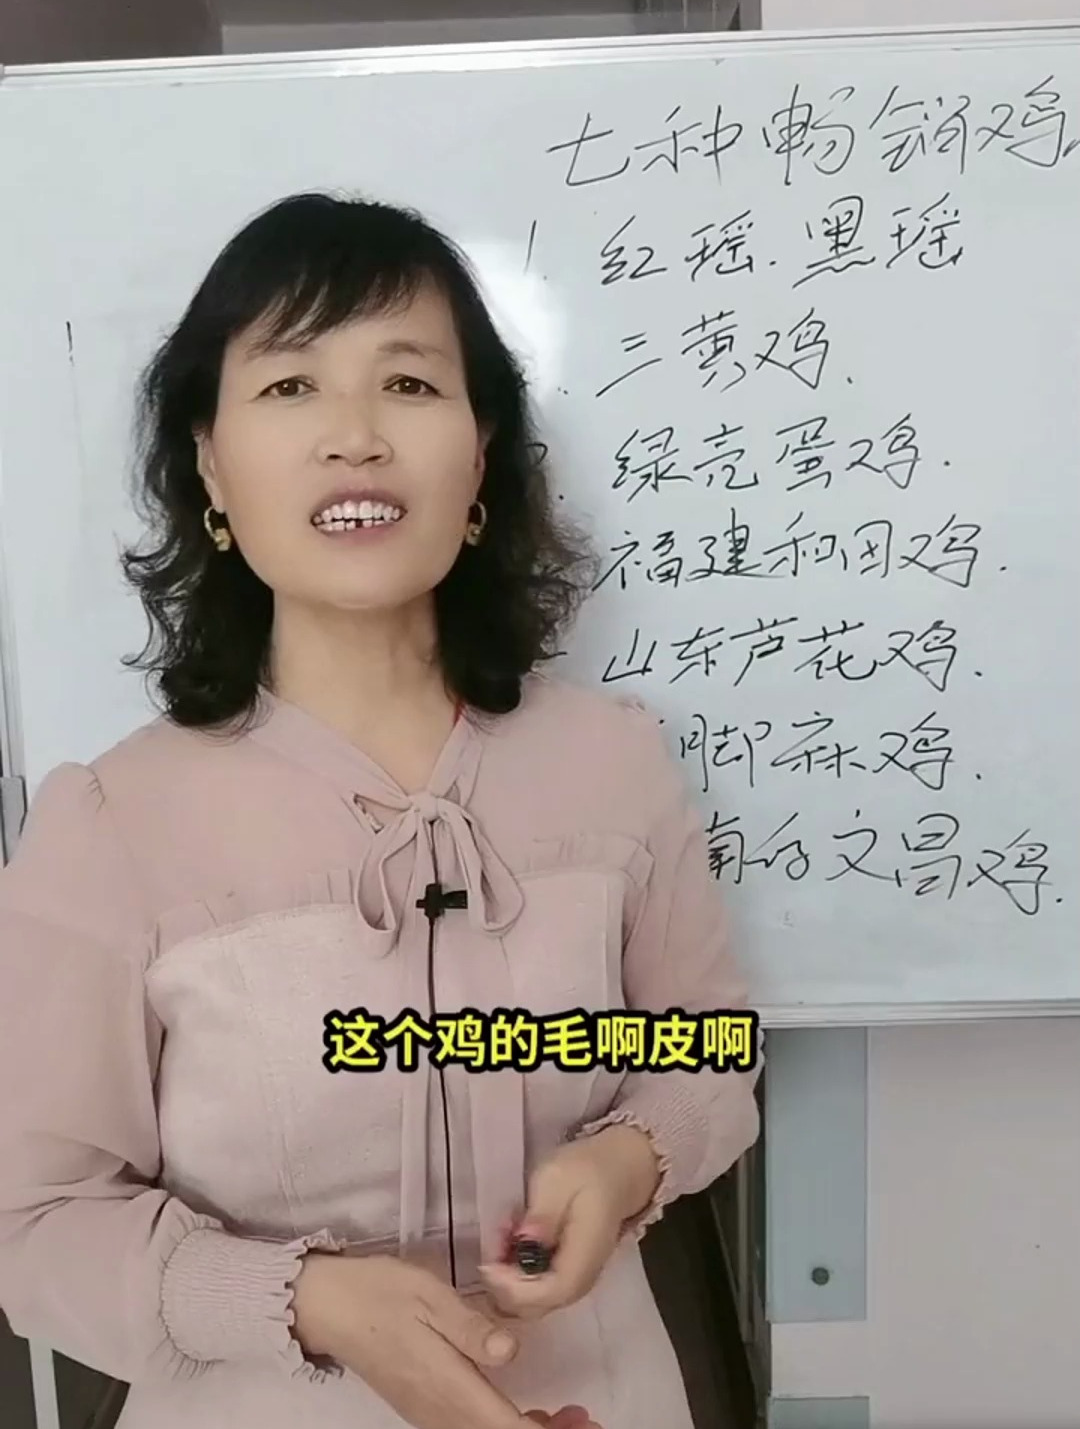 七种畅销鸡
1. 红瑶.黑瑶
三黄鸡.
绿壳蛋鸡.
福建和田鸡.
山东芦花鸡.
脚麻鸡.
南的文昌鸡.
这个鸡的毛啊皮啊